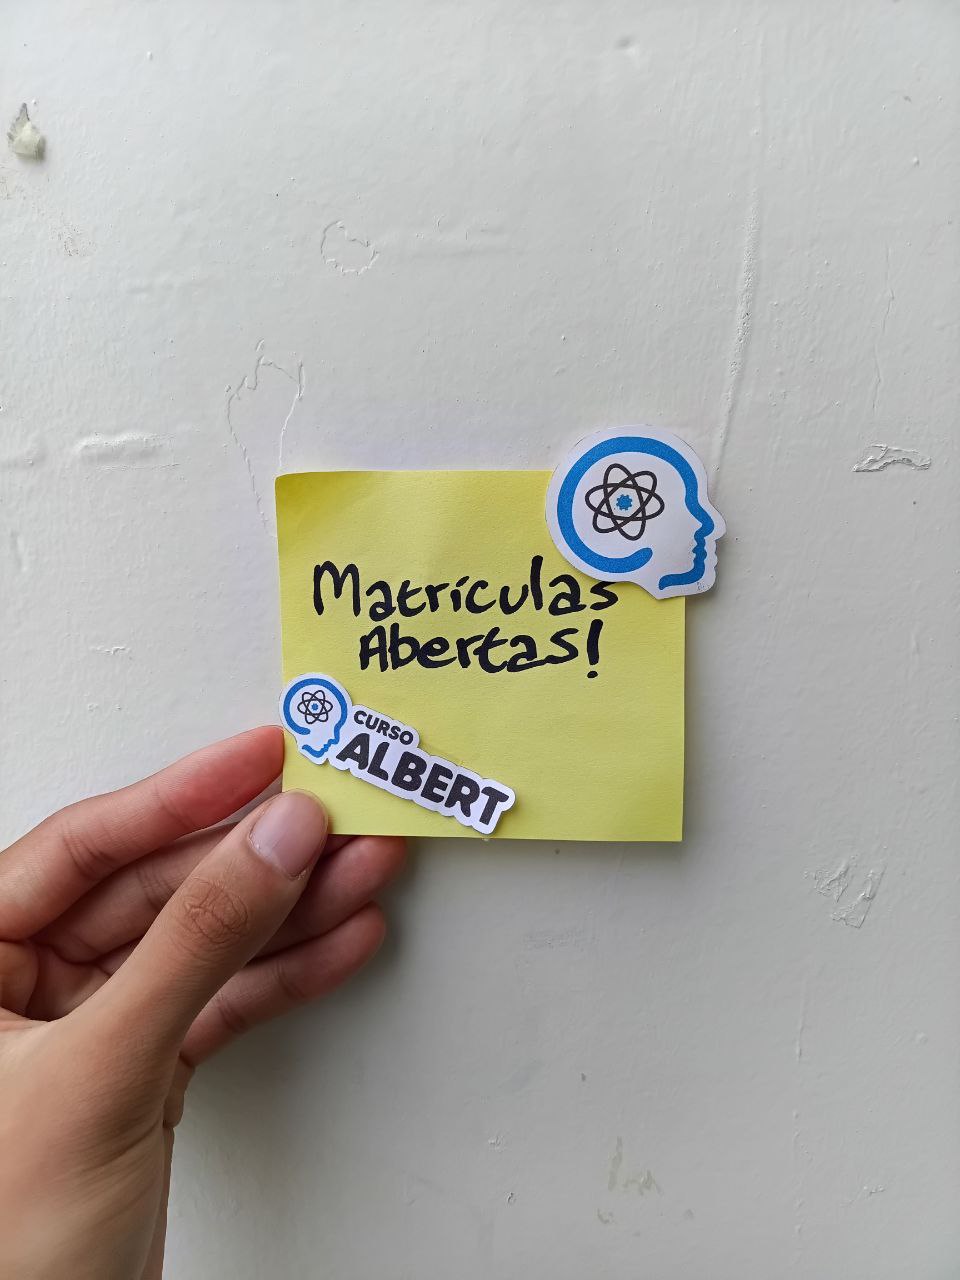 Matrículas
Abertas!
CURSO
ALBERT